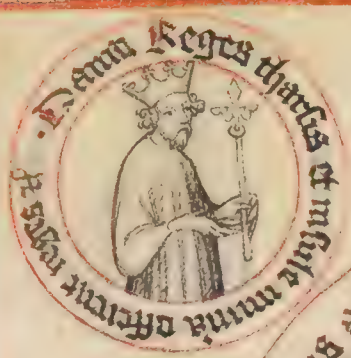 Dauid Reges tharsis et insule munera offerent reges &